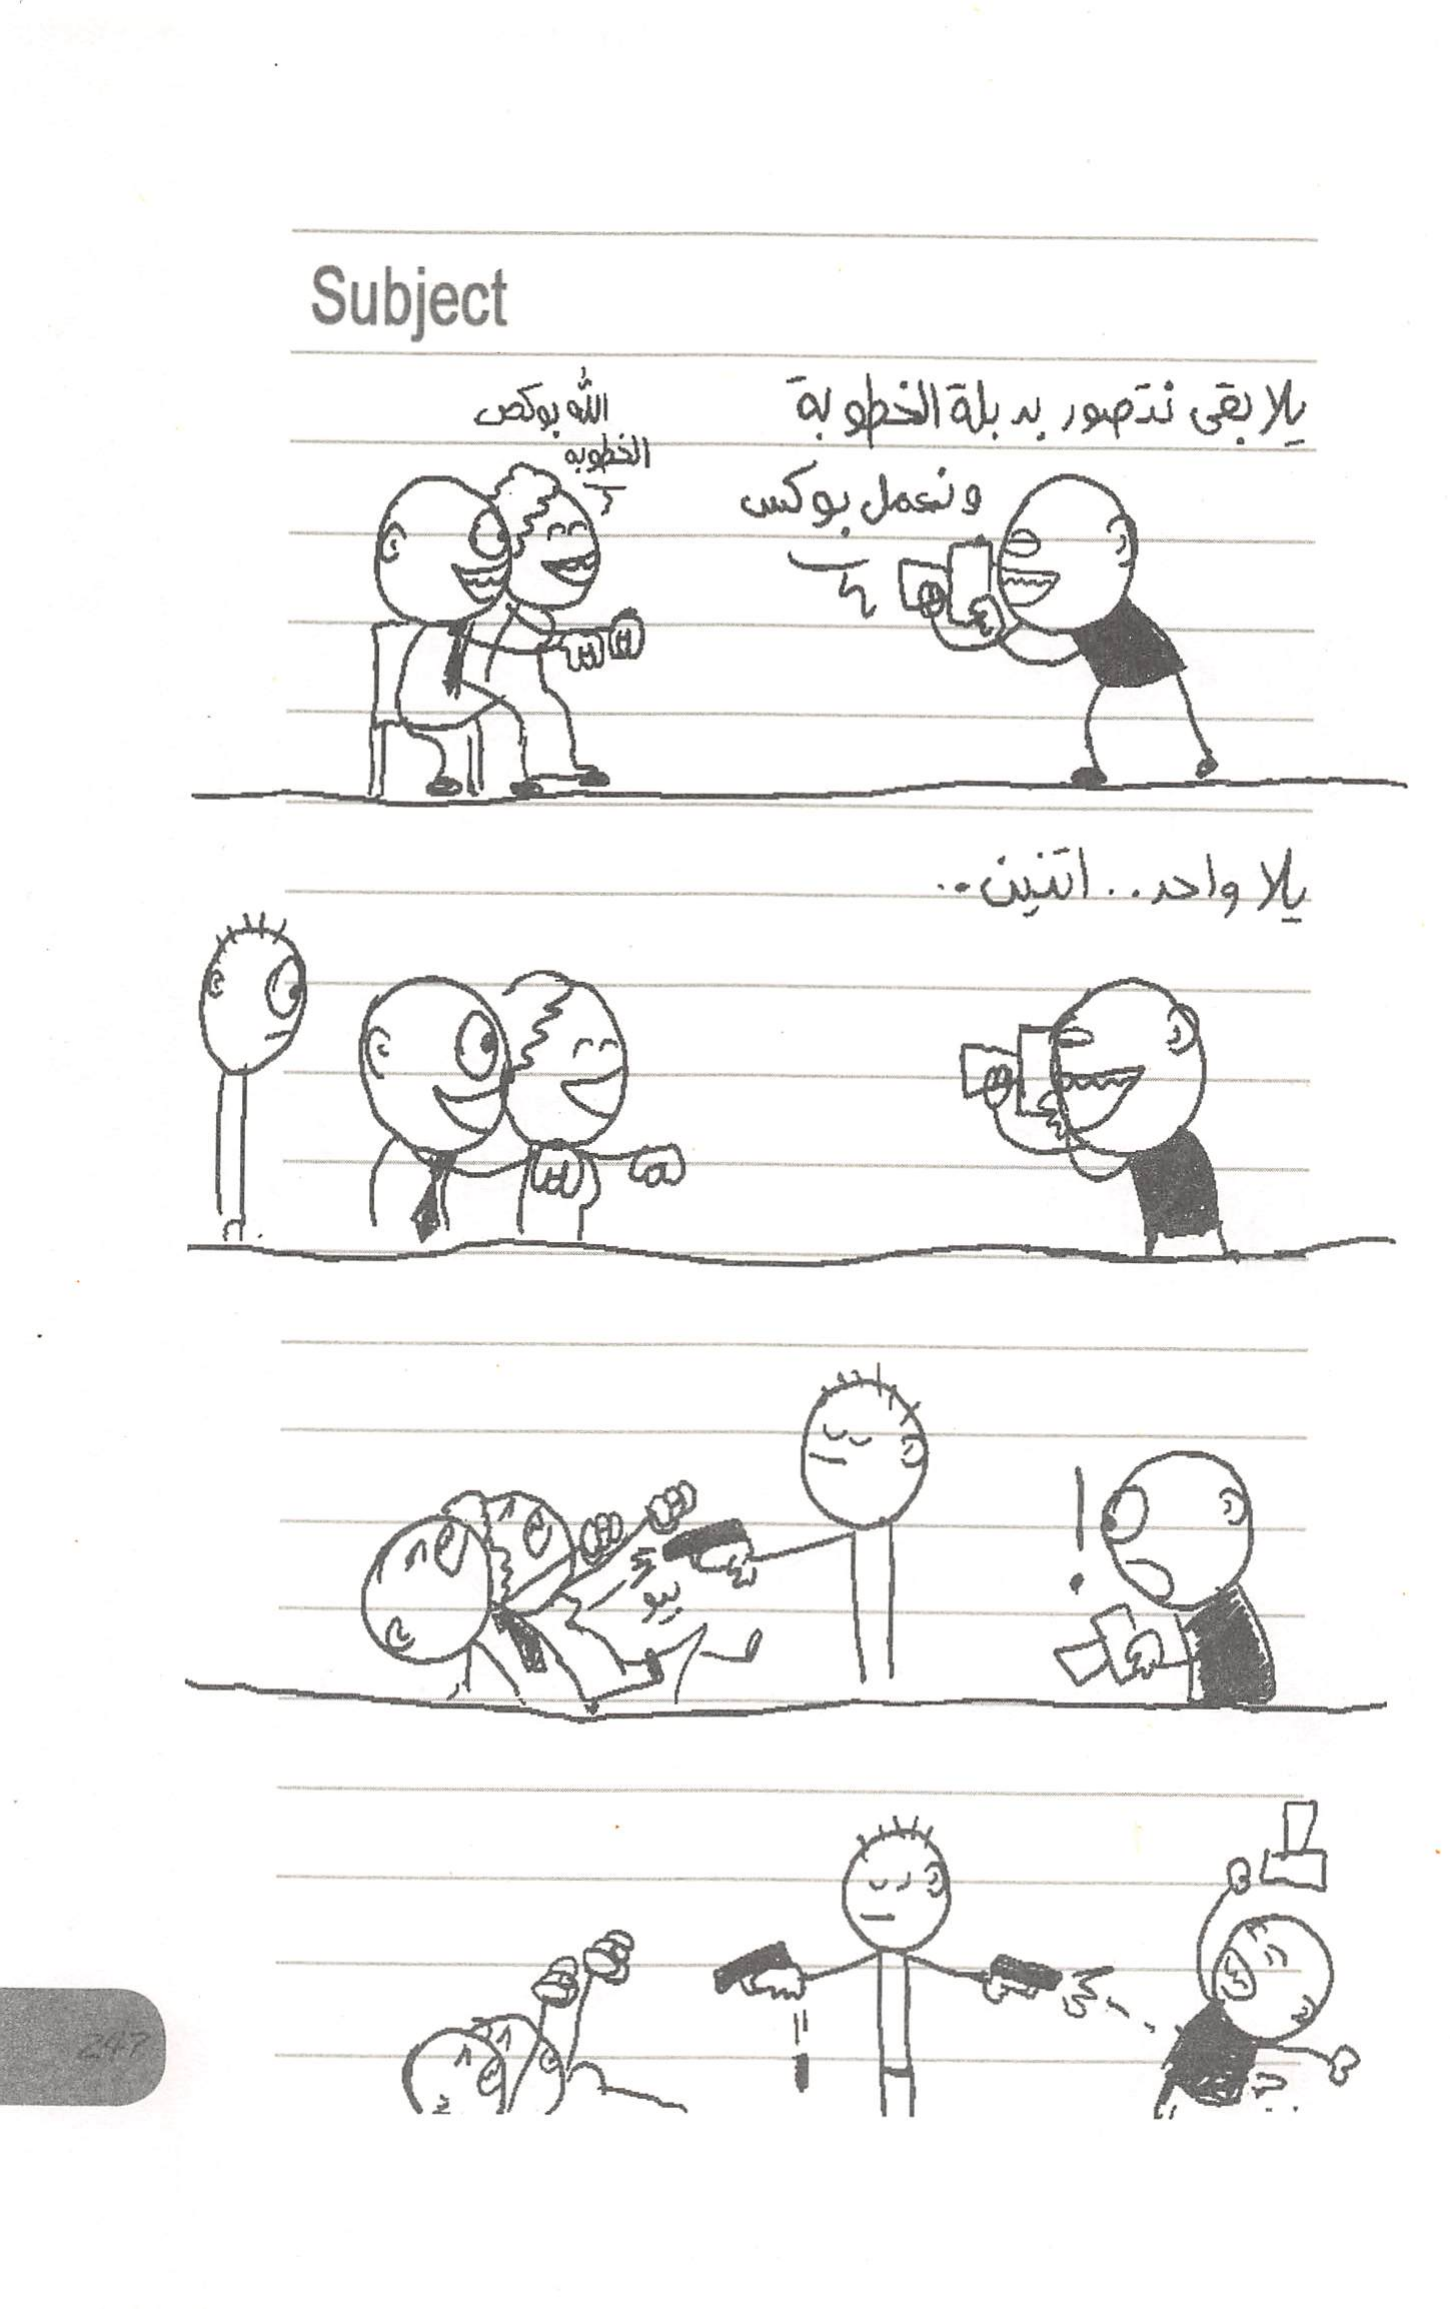 Subject
يلا بقى نتصور بدبلة الخطوبة
ونعمل بوكس
الله بوكص
الخطوبه
يلا واحد.. اتنين..
بيو
247